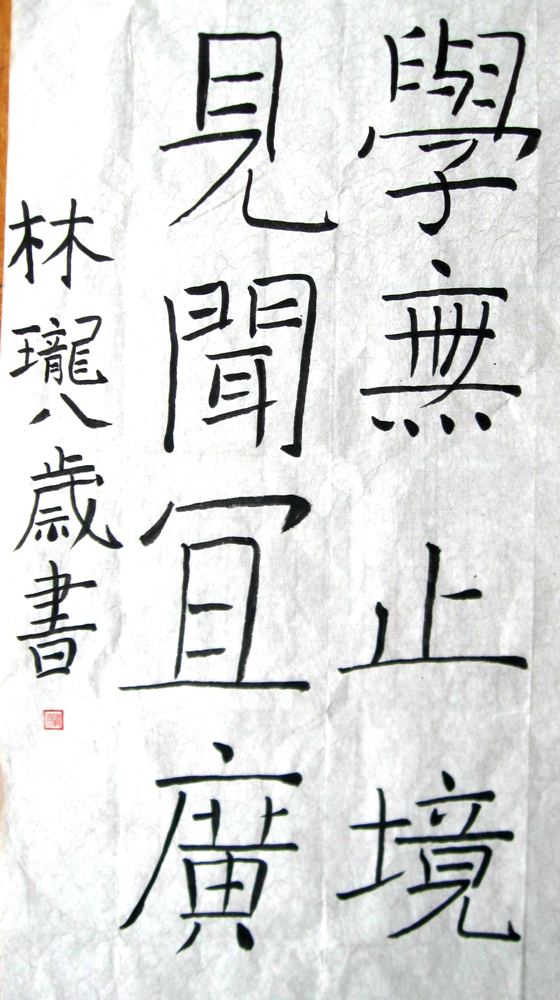 學無止境
見聞宜廣
林瓏八歲書